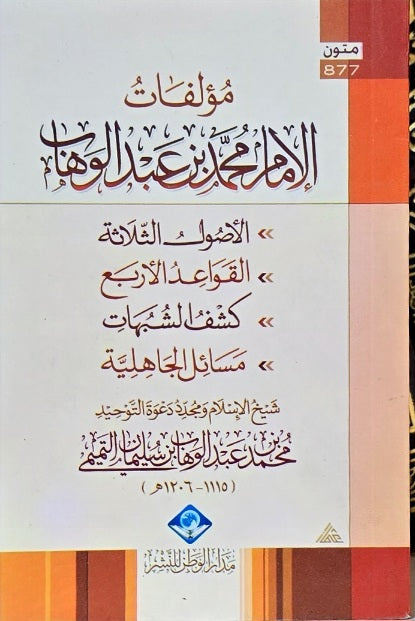 متون
877
مُؤلفَاتُ
الإمَام مُحمَّد بن عَبْد الوهَّاب
» الأصُولُ الثَّلاثَة
» القَوَاعِدُ الأربَع
» كشْفُ الشُبُهَاتِ
» مَسَائِل الجَاهِليَّة
شَيخُ الإسْلَام وَمُجَدِّدُ دَعْوَة التَّوْحِيدِ
مُحمَّد بن عَبْد الوهَّاب بن سُليمَان التَّمِيمِي
(١١١٥ - ١٢٠٦هـ)
مَدَارُ الوَطَن للنَّشْر